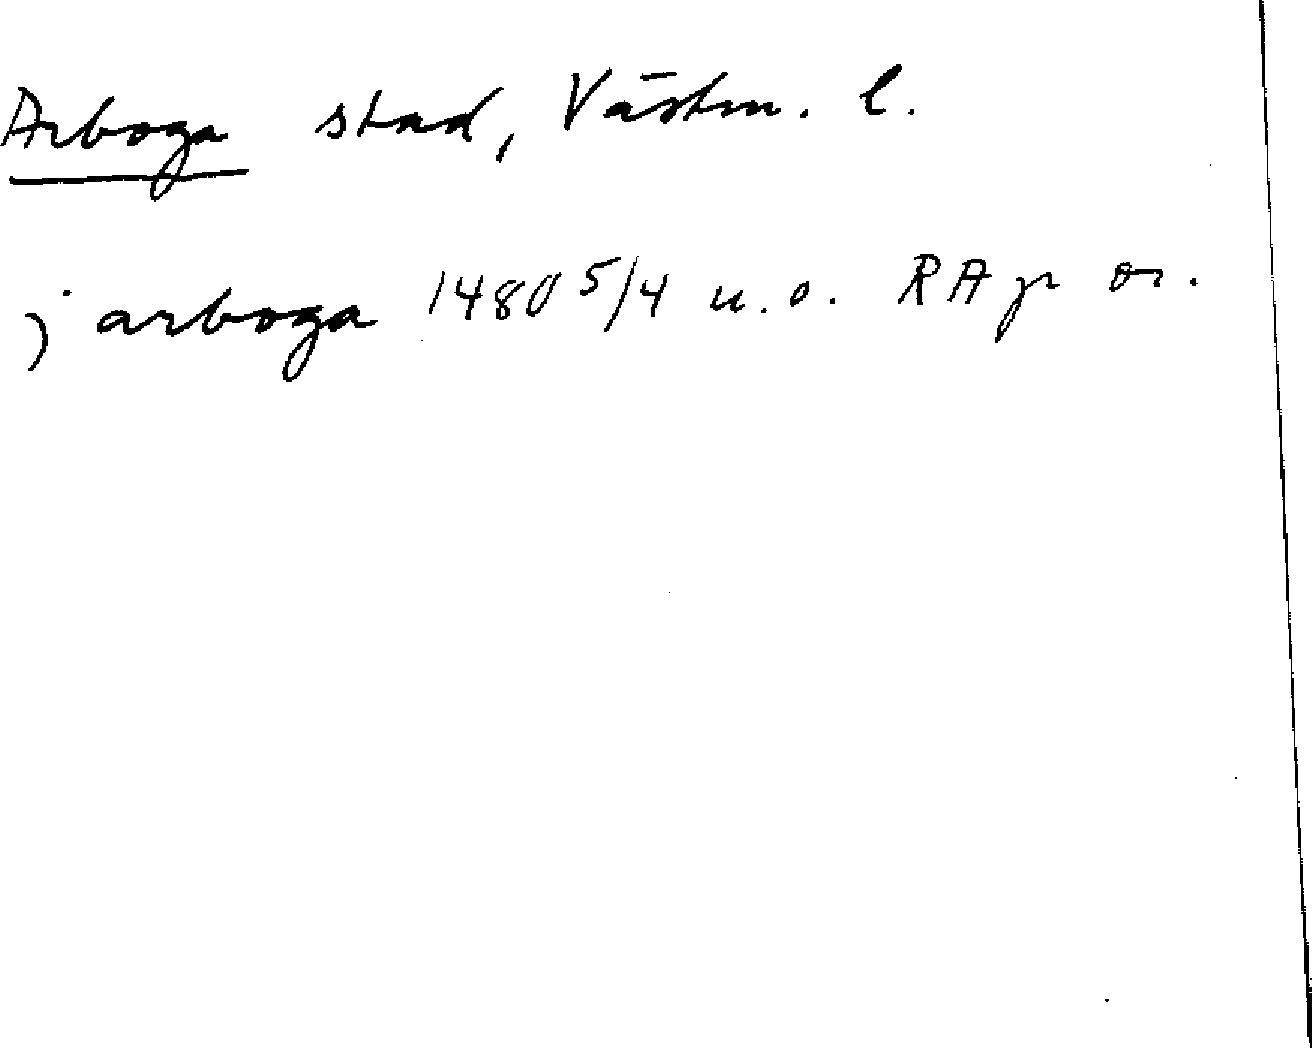 Arboga stad, Västm. l.
j arboga 1480 5/4 u.o. RAp or.